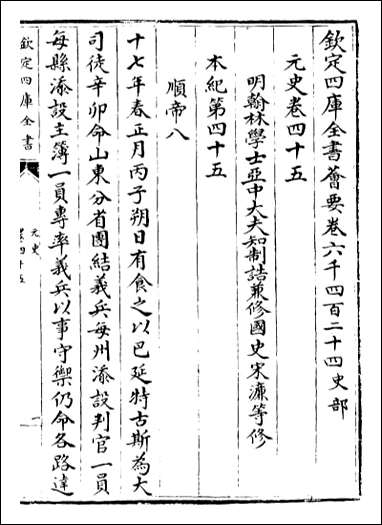 欽定四庫全書薈要卷六千四百二十四史部
元史卷四十五
明翰林學士亞中大夫知制誥兼修國史宋濂等修
本紀第四十五
順帝八
十七年春正月丙子朔日有食之以巴延特古斯為大
司徒辛卯命山東分省團結義兵每州添設判官一員
每縣添設主簿一員專率義兵以事守禦仍命各路達
欽定四庫全書
元史
卷四十五
一